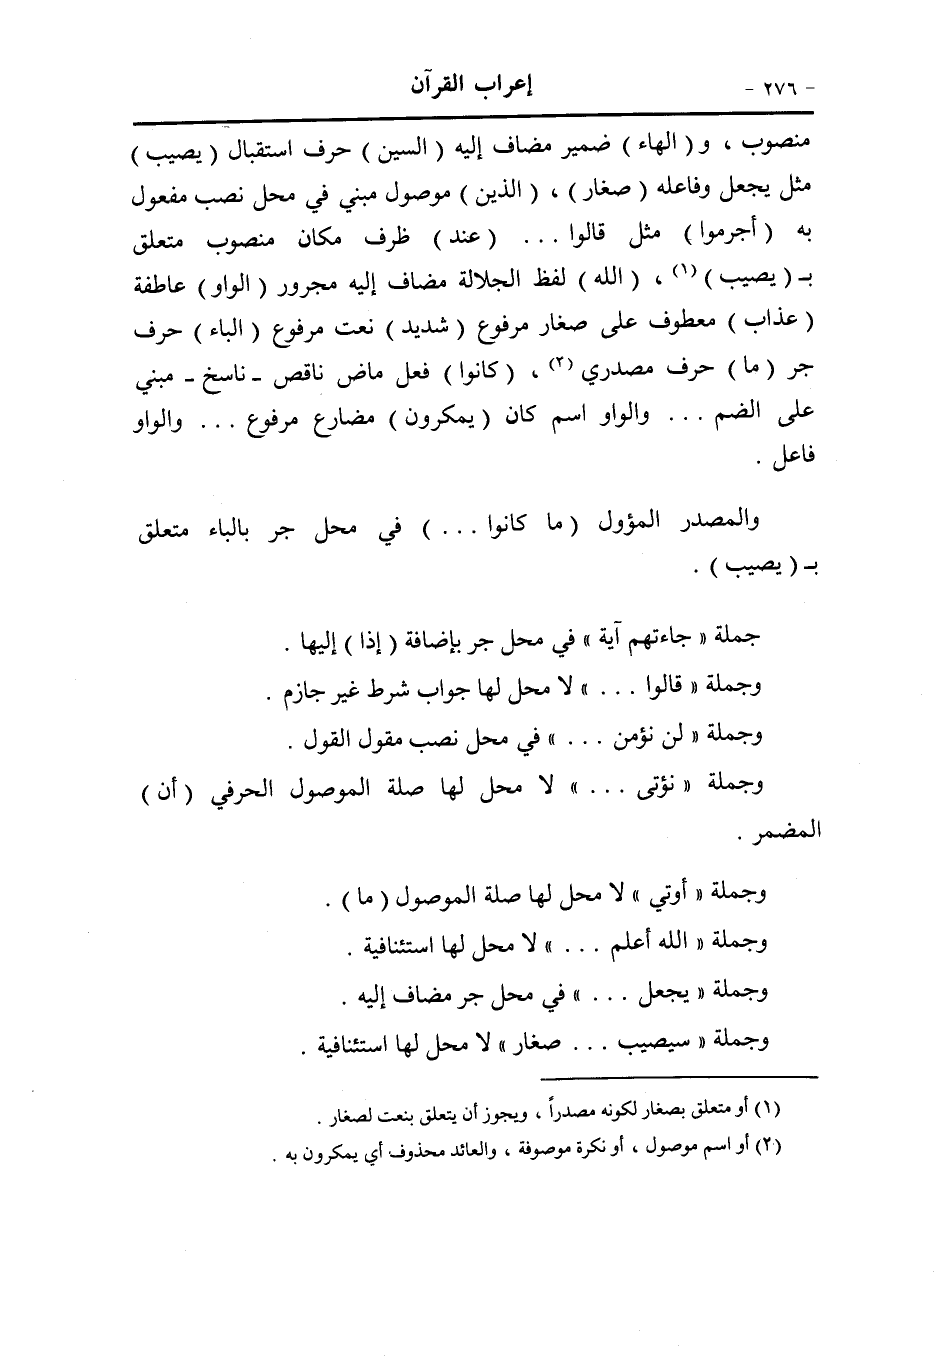 - ٢٧٦ - إعراب القرآن
منصوب ، و ( الهاء ) ضمير مضاف إليه ( السين ) حرف استقبال ( يصيب )
مثل يجعل وفاعله ( صغار ) ، ( الذين ) موصول مبني في محل نصب مفعول
به ( أجرموا ) مثل قالوا . . . ( عند ) ظرف مكان منصوب متعلق
بـ ( يصيب ) (١) ، ( الله ) لفظ الجلالة مضاف إليه مجرور ( الواو ) عاطفة
( عذاب ) معطوف على صغار مرفوع ( شديد ) نعت مرفوع ( الباء ) حرف
جر ( ما ) حرف مصدري (٢) ، ( كانوا ) فعل ماض ناقص ـ ناسخ ـ مبني
على الضم . . . والواو اسم كان ( يمكرون ) مضارع مرفوع . . . والواو
فاعل .
والمصدر المؤول ( ما كانوا . . . ) في محل جر بالباء متعلق
بـ ( يصيب ) .
جملة « جاءتهم آية » في محل جر بإضافة ( إذا ) إليها .
وجملة « قالوا . . . » لا محل لها جواب شرط غير جازم .
وجملة « لن نؤمن . . . » في محل نصب مقول القول .
وجملة « نؤتى . . . » لا محل لها صلة الموصول الحرفي ( أن )
المضمر .
وجملة « أوتي » لا محل لها صلة الموصول ( ما ) .
وجملة « الله أعلم . . . » لا محل لها استئنافية .
وجملة « يجعل . . . » في محل جر مضاف إليه .
وجملة « سيصيب . . . صغار » لا محل لها استئنافية .
(١) أو متعلق بصغار لكونه مصدراً ، ويجوز أن يتعلق بنعت لصغار .
(٢) أو اسم موصول ، أو نكرة موصوفة ، والعائد محذوف أي يمكرون به .